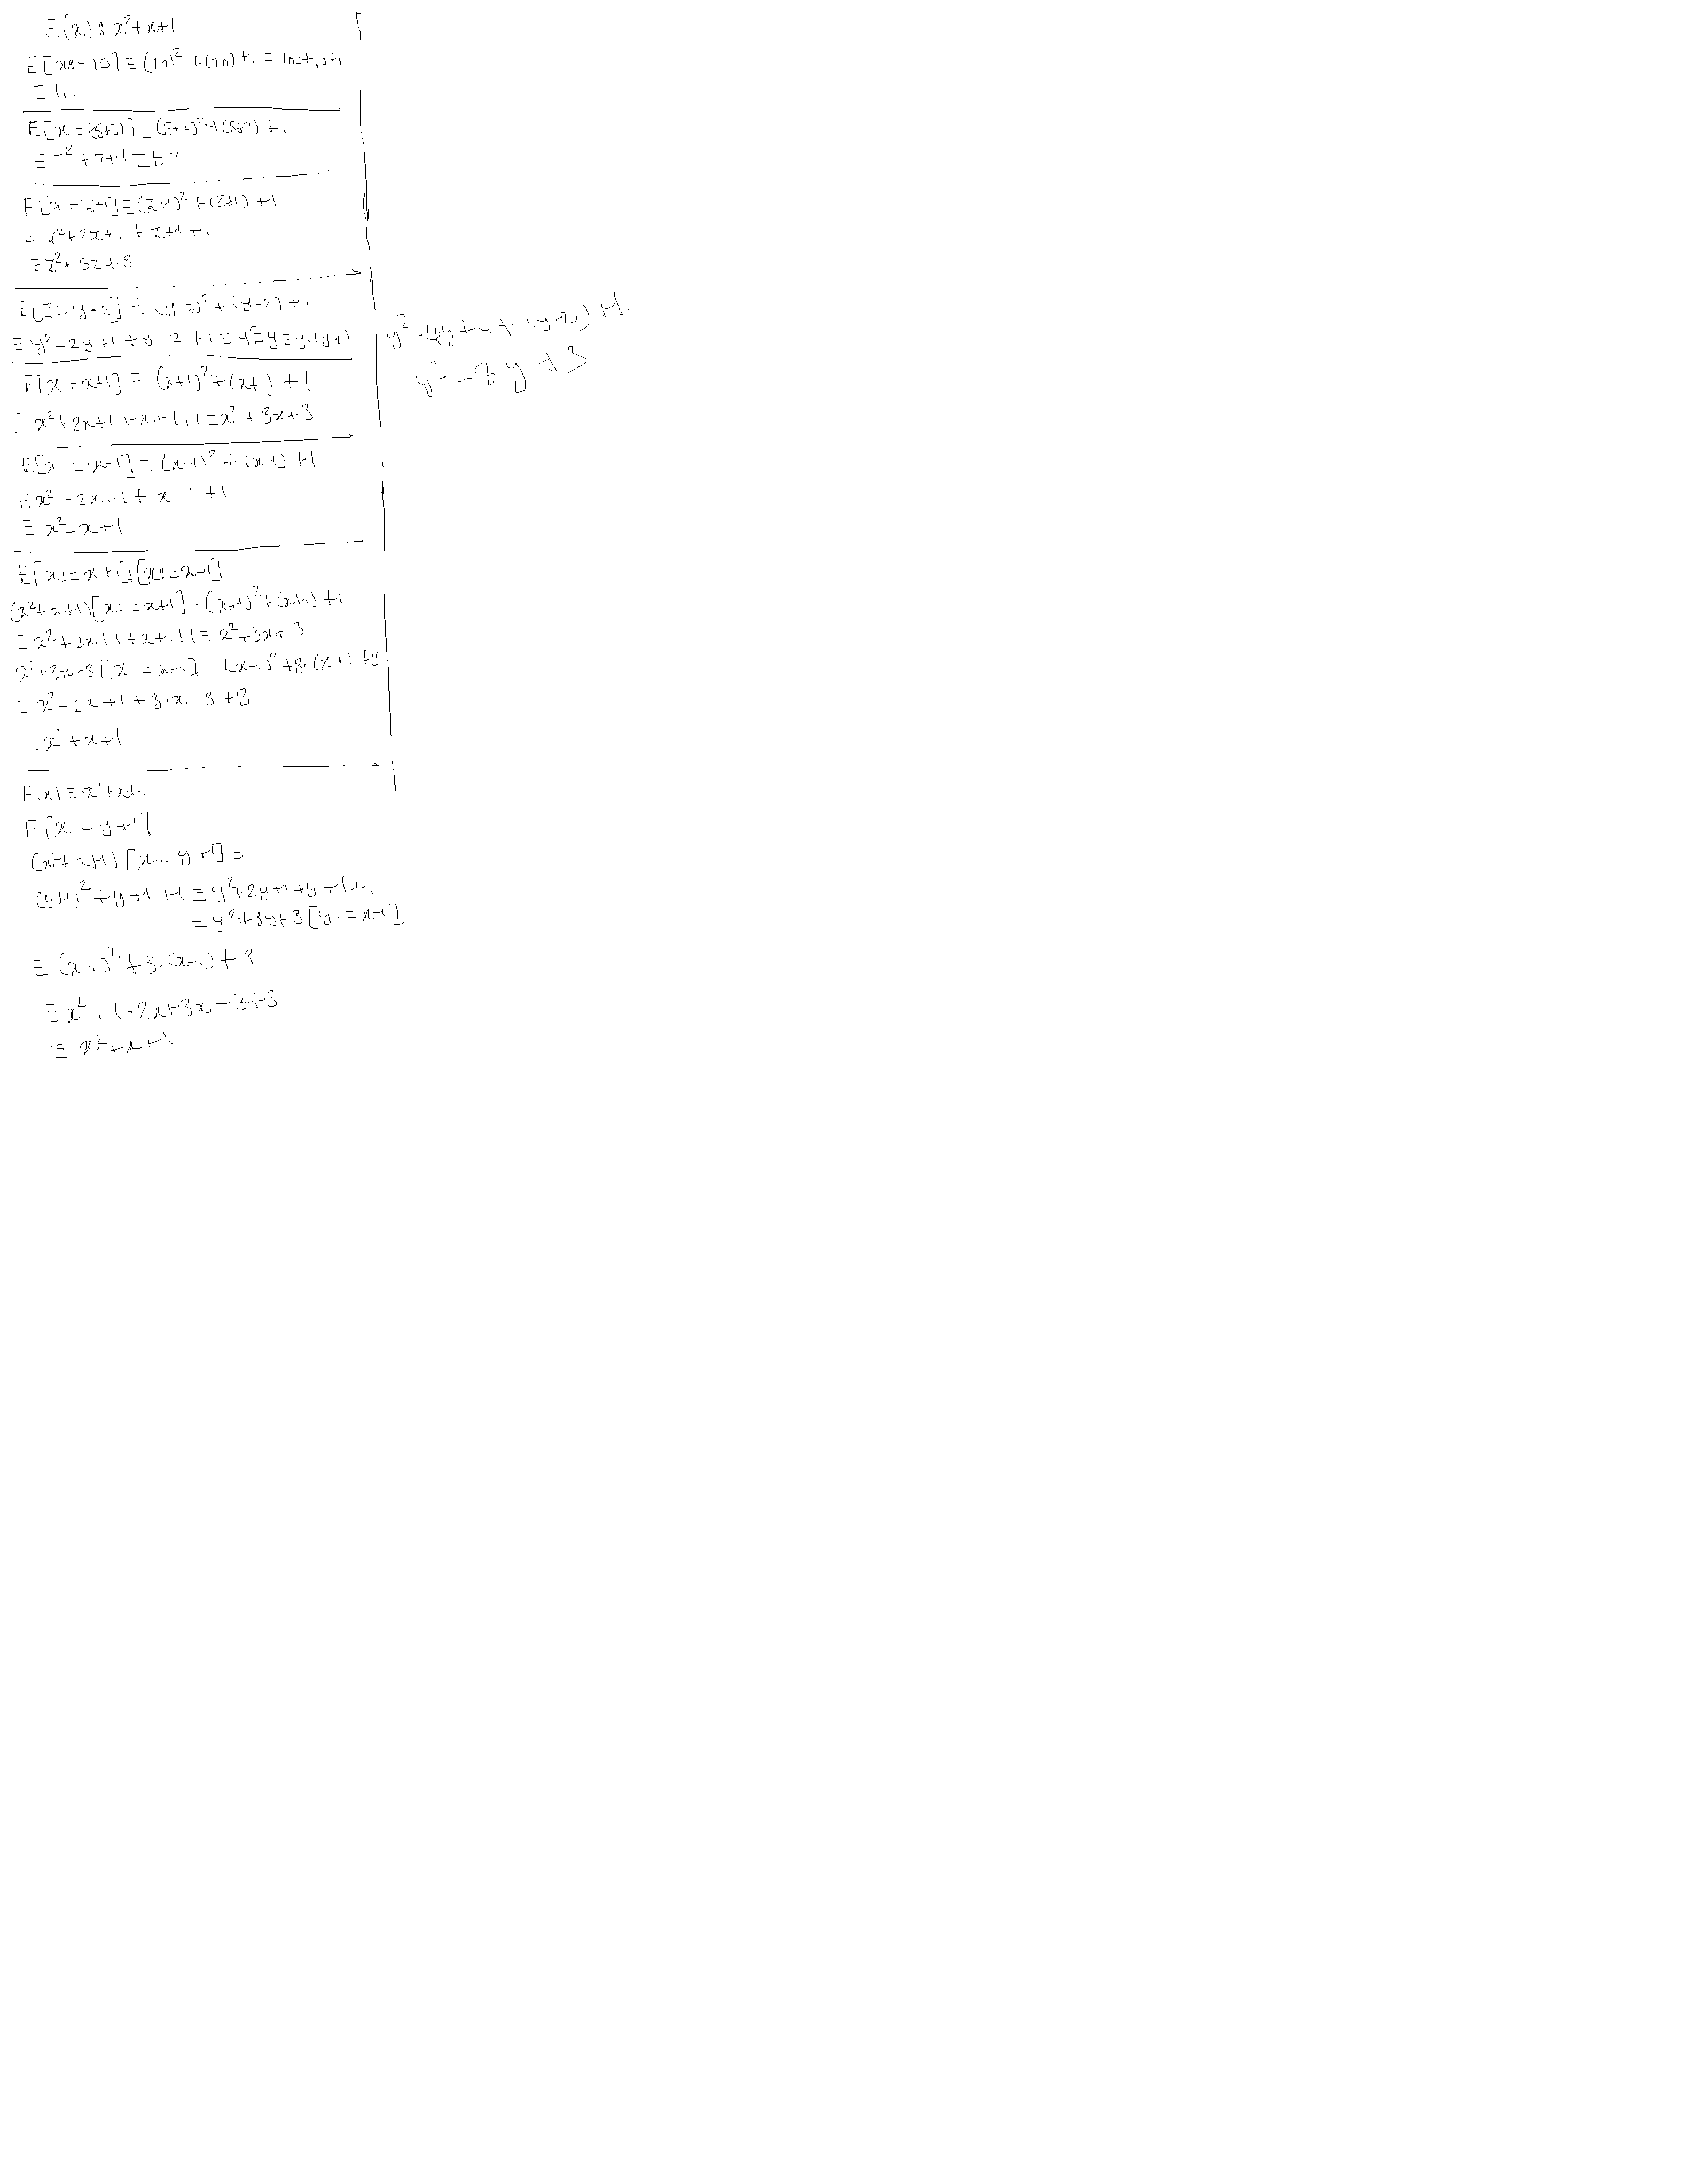 E(x): x²+x+1
E[x:=10] ≡ (10)² + (10) + 1 ≡ 100+10+1
≡ 111
E[x:=(5+2)] ≡ (5+2)² + (5+2) + 1
≡ 7² + 7 + 1 ≡ 57
E[x:=z+1] ≡ (z+1)² + (z+1) + 1
≡ z²+2z+1 + z+1 +1
≡ z²+ 3z+3
E[z:=y-2] ≡ (y-2)² + (y-2) + 1
≡ y²-2y+1 + y-2 +1 ≡ y²-y ≡ y·(y-1)
y²-4y+4+(y-2)+1.
y²-3y+3
E[x:=x+1] ≡ (x+1)²+(x+1) + 1
≡ x²+2x+1+x+1+1 ≡ x²+3x+3
E[x:=x-1] ≡ (x-1)² + (x-1) + 1
≡ x² - 2x+1 + x-1 +1
≡ x²-x+1
E[x:=x+1][x:=x-1]
(x²+x+1)[x:=x+1] ≡ (x+1)²+(x+1)+1
≡ x²+2x+1+x+1+1 ≡ x²+3x+3
x²+3x+3[x:=x-1] ≡ (x-1)²+3·(x-1)+3
≡ x²-2x+1+3·x-3+3
≡ x²+x+1
E(x) ≡ x²+x+1
E[x:=y+1]
(x²+x+1)[x:=y+1] ≡
(y+1)²+y+1+1 ≡ y²+2y+1+y+1+1
≡ y²+3y+3[y:=x-1]
≡ (x-1)²+3·(x-1)+3
≡ x²+1-2x+3x-3+3
≡ x²+x+1